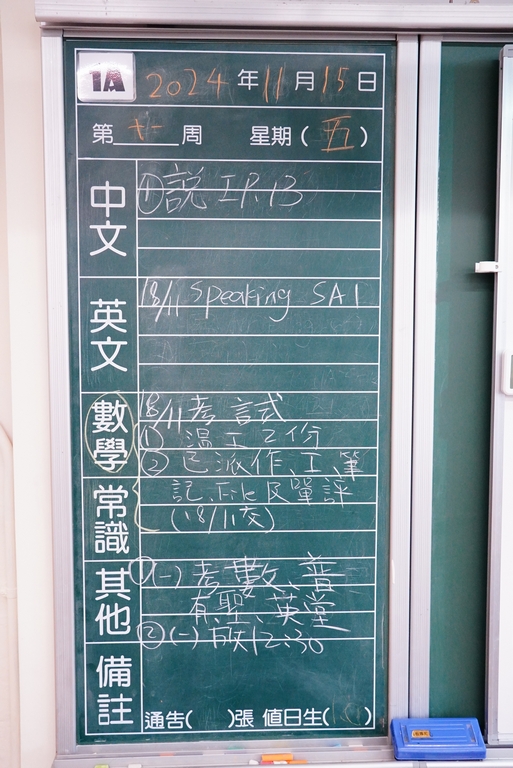 1A 2024年11月15日
第十一周 星期(五)
中文
①說工P.13
英文
18/11 Speaking SA1
數學
18/11考試
① 溫工2份
② 已派作、工、筆
常識
記、File及單評
(18/11交)
其他
①(一)考數、普
有聖、英堂
②(一)放12:30
備註
通告( )張 值日生( )